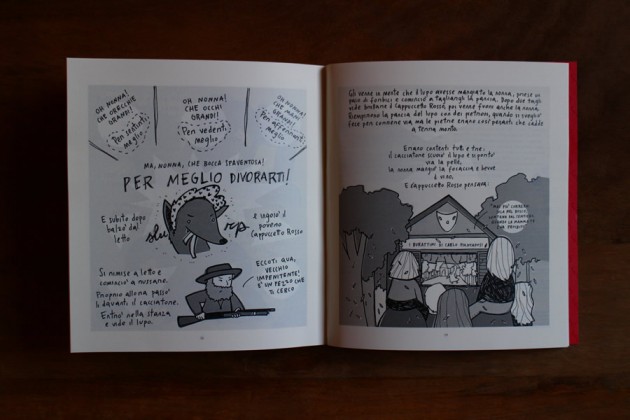 OH NONNA!
CHE ORECCHIE
GRANDI!
Per sentirti
meglio
OH NONNA!
CHE OCCHI
GRANDI!
Per vederti
meglio
OH NONNA!
CHE MANI
GRANDI!
Per afferrarti
meglio
MA, NONNA, CHE BOCCA SPAVENTOSA!
PER MEGLIO DIVORARTI!
E subito dopo
balzò dal
letto
slurp
e ingoiò il
povero
Cappuccetto Rosso
Si rimise a letto e
cominciò a russare.
Proprio allora passò
lì davanti il cacciatore.
Entrò nella stanza
e vide il lupo.
ECCOTI QUA,
VECCHIO
IMPENITENTE!
È UN PEZZO CHE
TI CERCO
Gli venne in mente che il lupo avesse mangiato la nonna, prese un
paio di forbici e cominciò a tagliargli la pancia. Dopo due tagli
vide spuntare il Cappuccetto Rosso, poi venne fuori anche la nonna.
Riempirono la pancia del lupo con dei pietroni, quando si svegliò
fece per correre via ma le pietre erano così pesanti che cadde
a terra morto.
Erano contenti tutti e tre:
il cacciatore scuoiò il lupo e si portò
via la pelle,
la nonna mangiò la focaccia e bevve
il vino.
E Cappuccetto Rosso pensava:
I BURATTINI DI CARLO